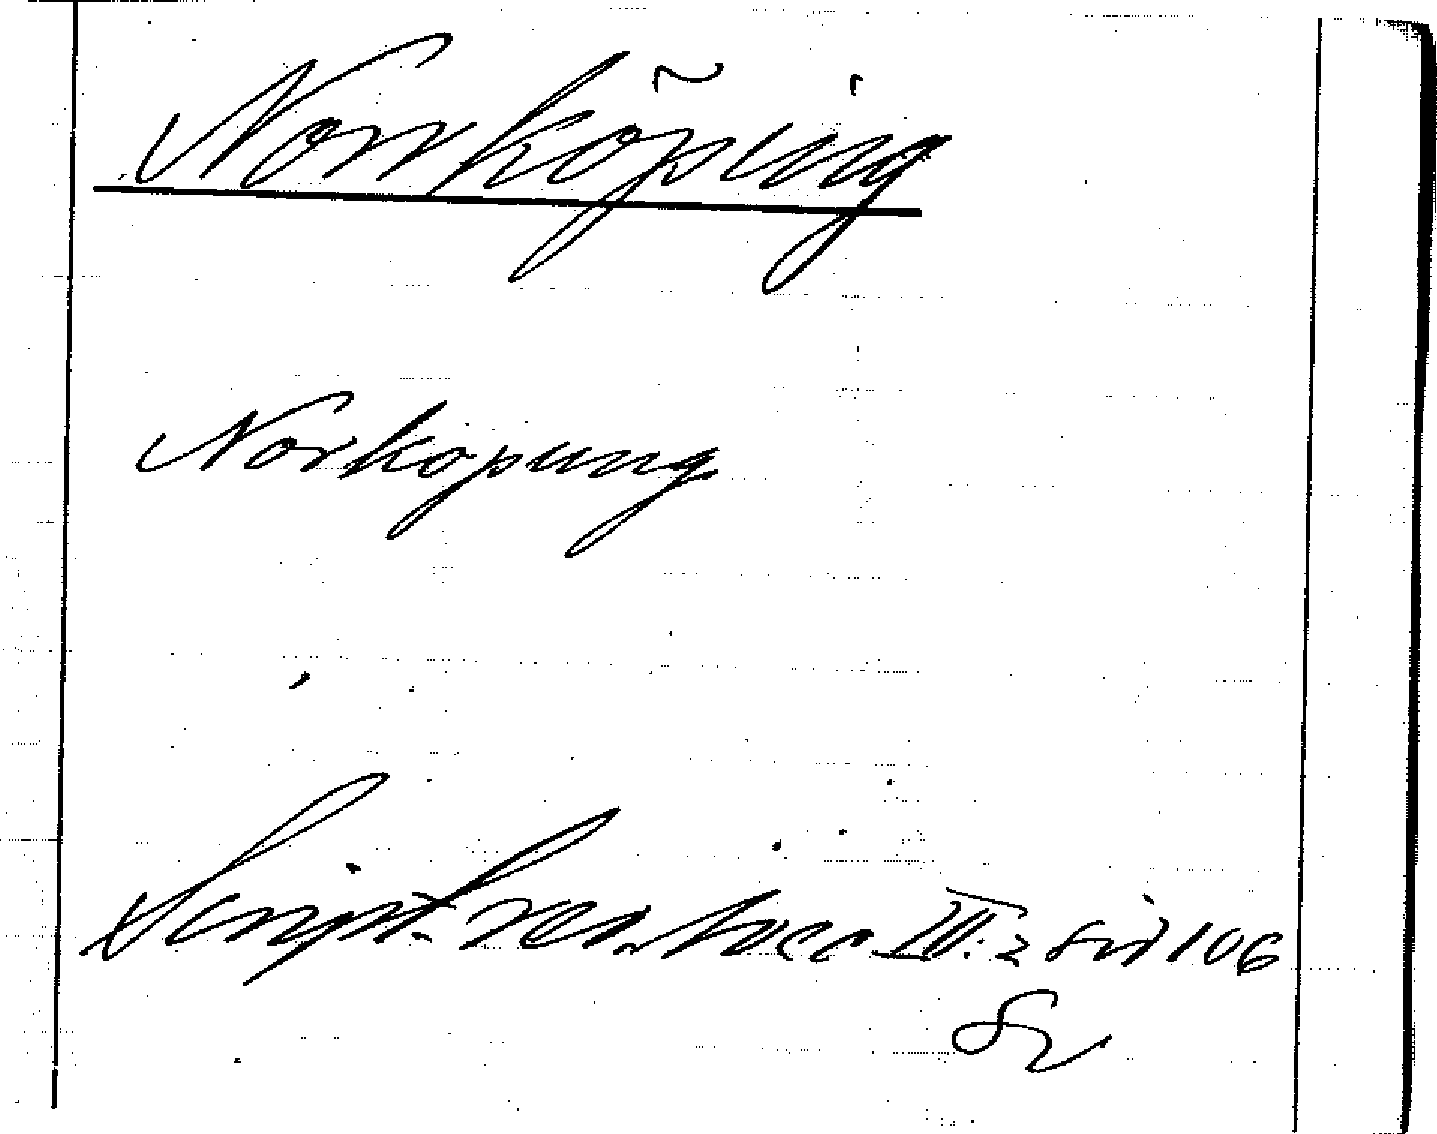 Norrköping
Norkopung
Script. rer. svec. III: 2 sid 106